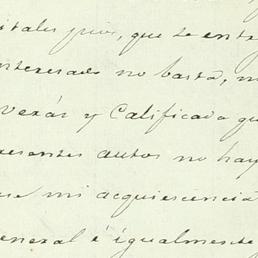 itales pios, que se entr
nteresado no basta, n
veraz y Calificada qu
resentes autos no hay
se mi acquiescencia
eneral é igualmente